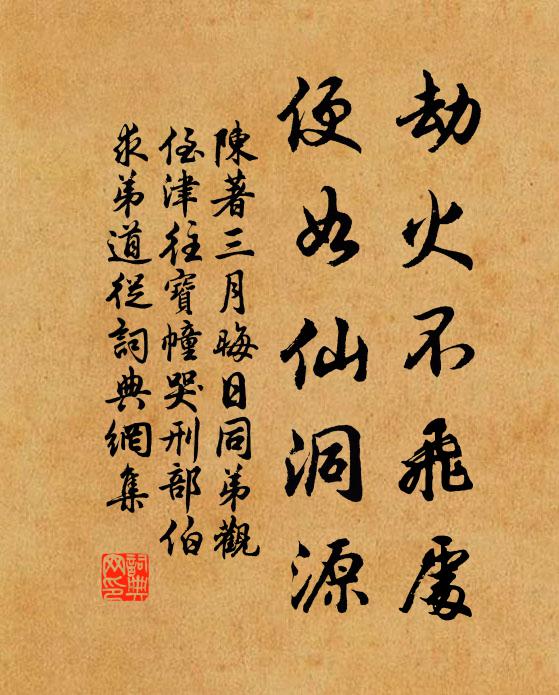 劫火不飛處
便如仙洞源
陳著三月晦日同弟觀
侄津往寶幢哭刑部伯
求弟道從詞典網集
詞典網印